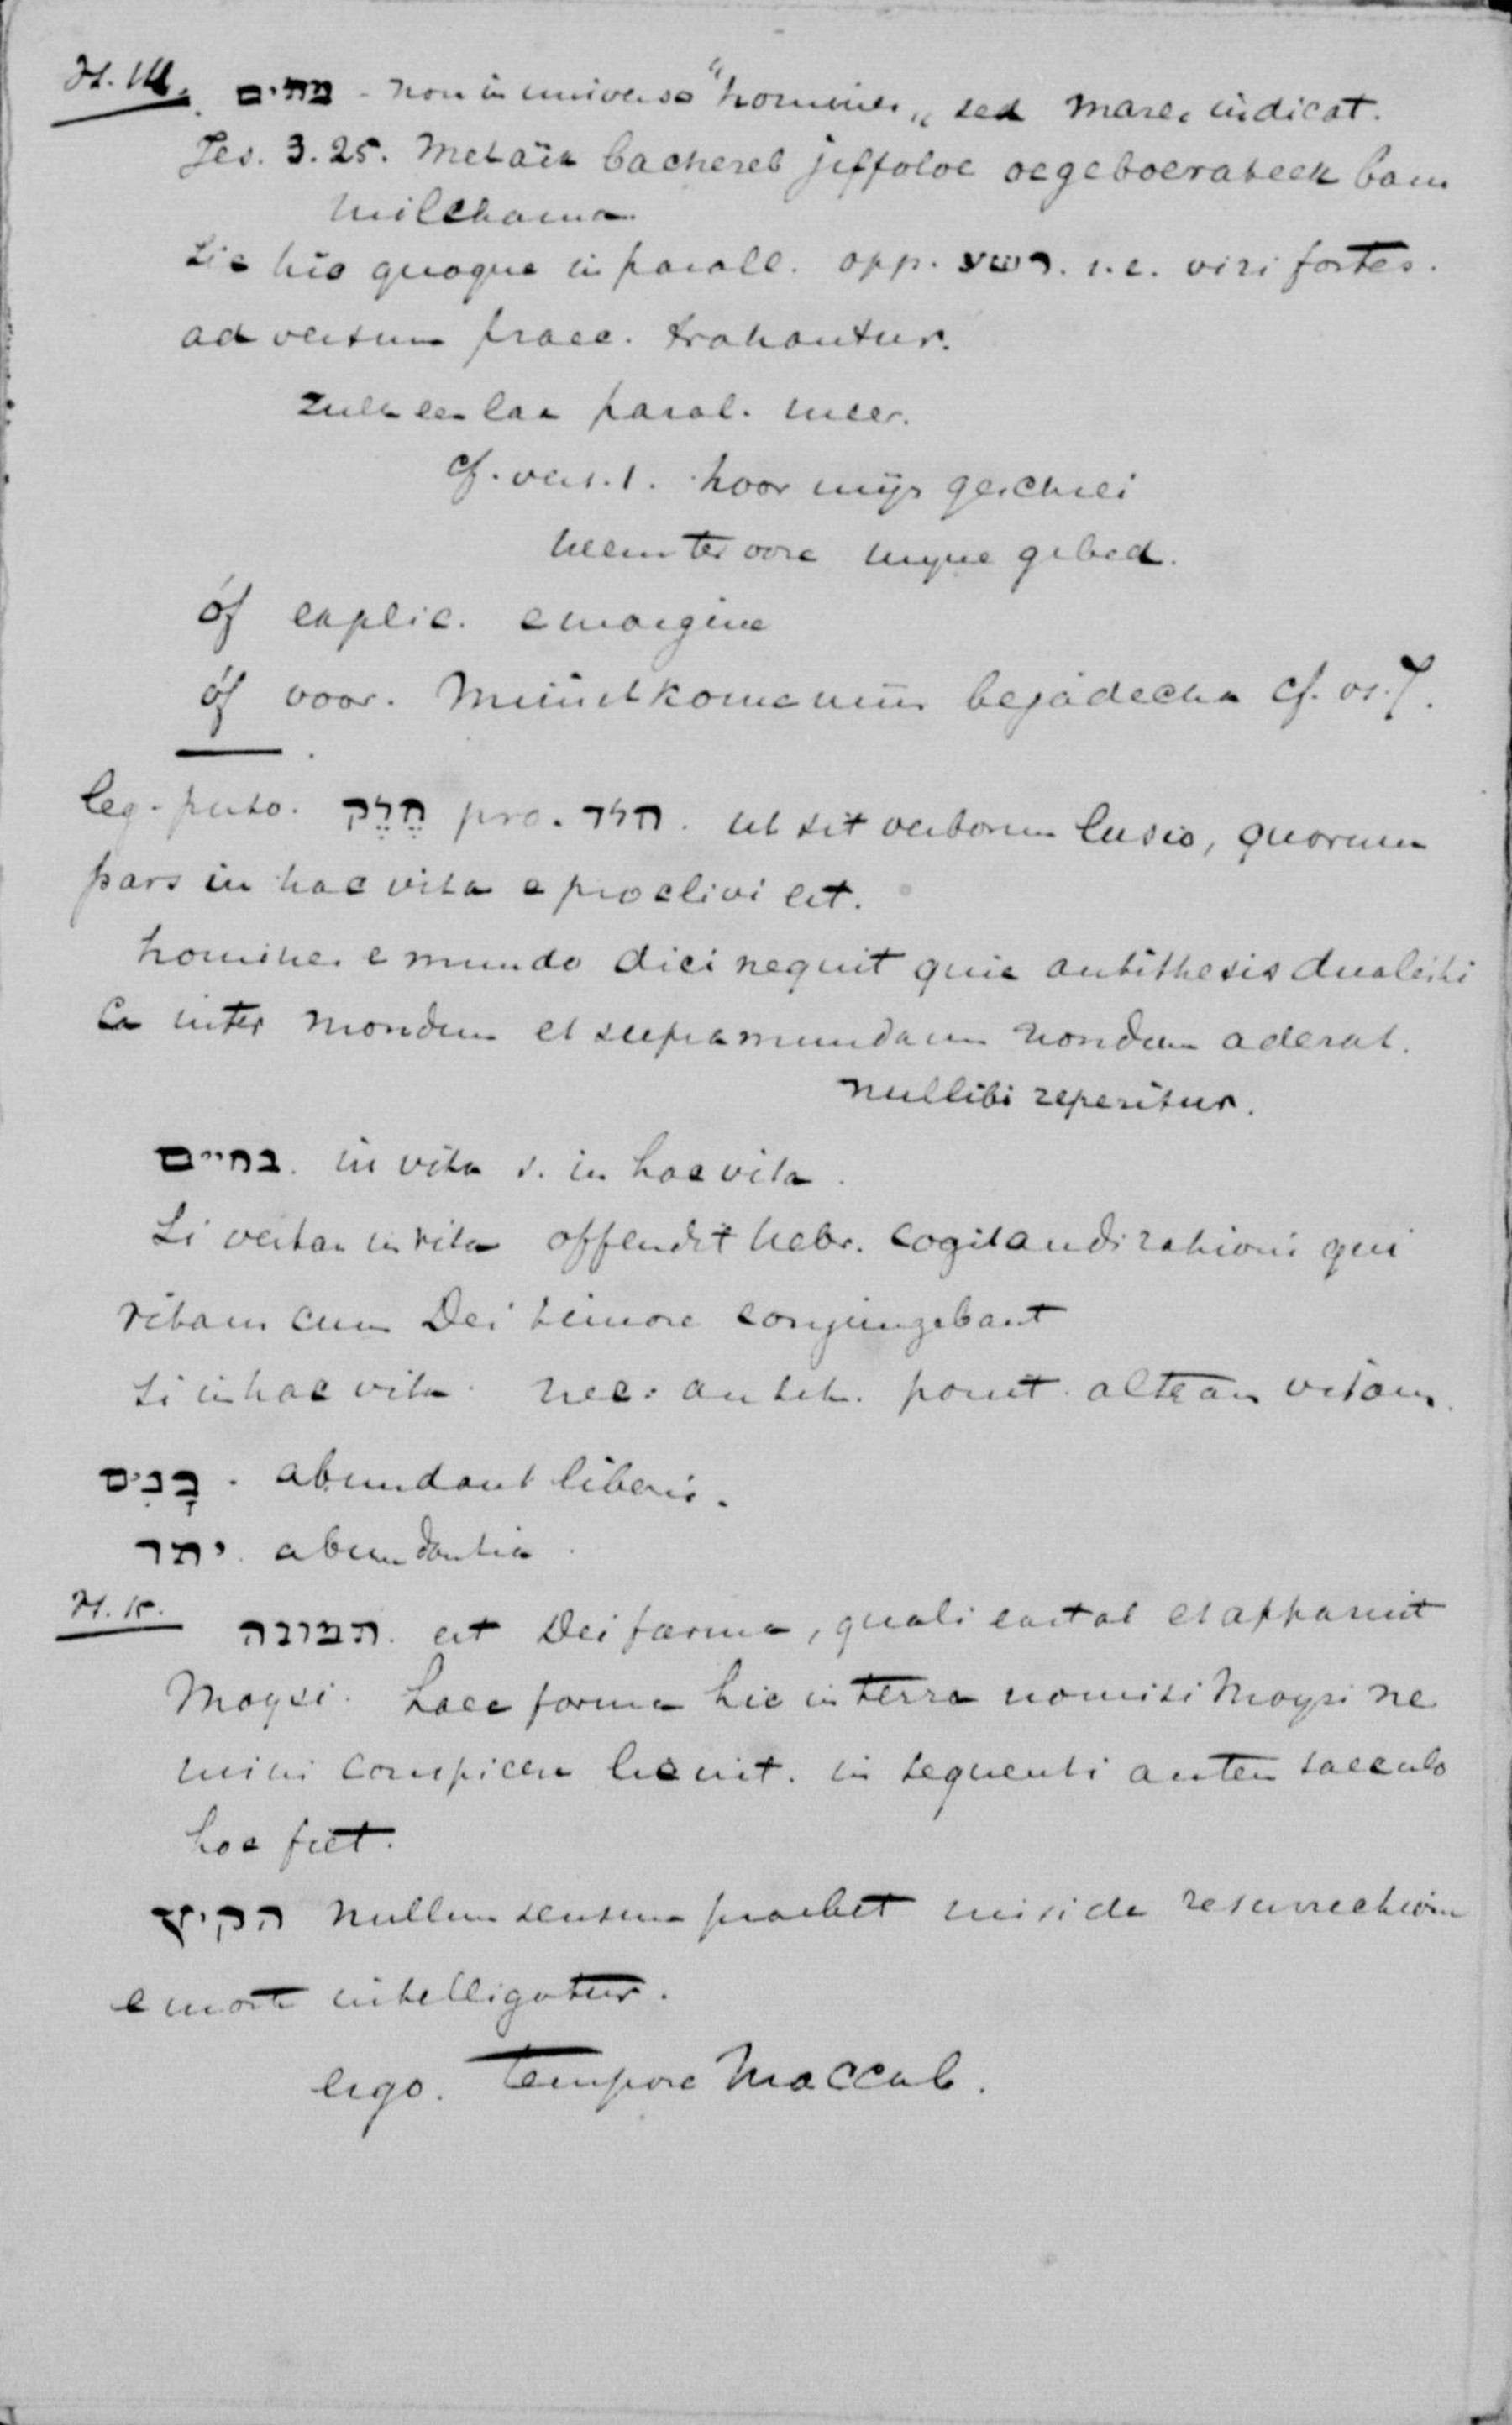 H. 14. מתים - non in universo "homines„ sed mares indicat.
Jes. 3.25. Metaïk bachereb jiffoloe oegeboerateek bam
milchama
Sic hic quoque in parall. opp. רשע. i.e. viri fortes.
ad versum praec. trahantur.
zulk een lan paral. meer.
cf. vers. 1. hoor mijn geschrei
neem ter oore myne gebed.
óf explic. e margine
óf voor. bejádecha cf. vs. 7.
leg. puto. חֶלֶק pro. חלד. ut sit verborum lusio, quorum
pars in hac vita e proclivi est.
homines e mundo dici nequit quia antithesis dualisti
ca inter mondum et supramundanum nondum aderat.
nullibi reperitur.
בחיים. in vita s. in hac vita.
Si vertam in vita offendit hebr. cogitandi rationi qui
vitam cum Dei timore conjungebant
Si in hac vita. nec. antith. ponit. alteram vitam.
בָנִים. abundant liberis.
יתר. abundantia.
H. 15. תמונה. est Dei forma, quali exstat et apparuit
Moysi. haec forma hic in terra non nisi Moysi ne
mini conspicere licuit. in sequenti autem saeculo
hoc fiet.
הקיץ nullum sensum praebet nisi de resurrectione
e morte intelligatur.
ergo. tempore Maccab.